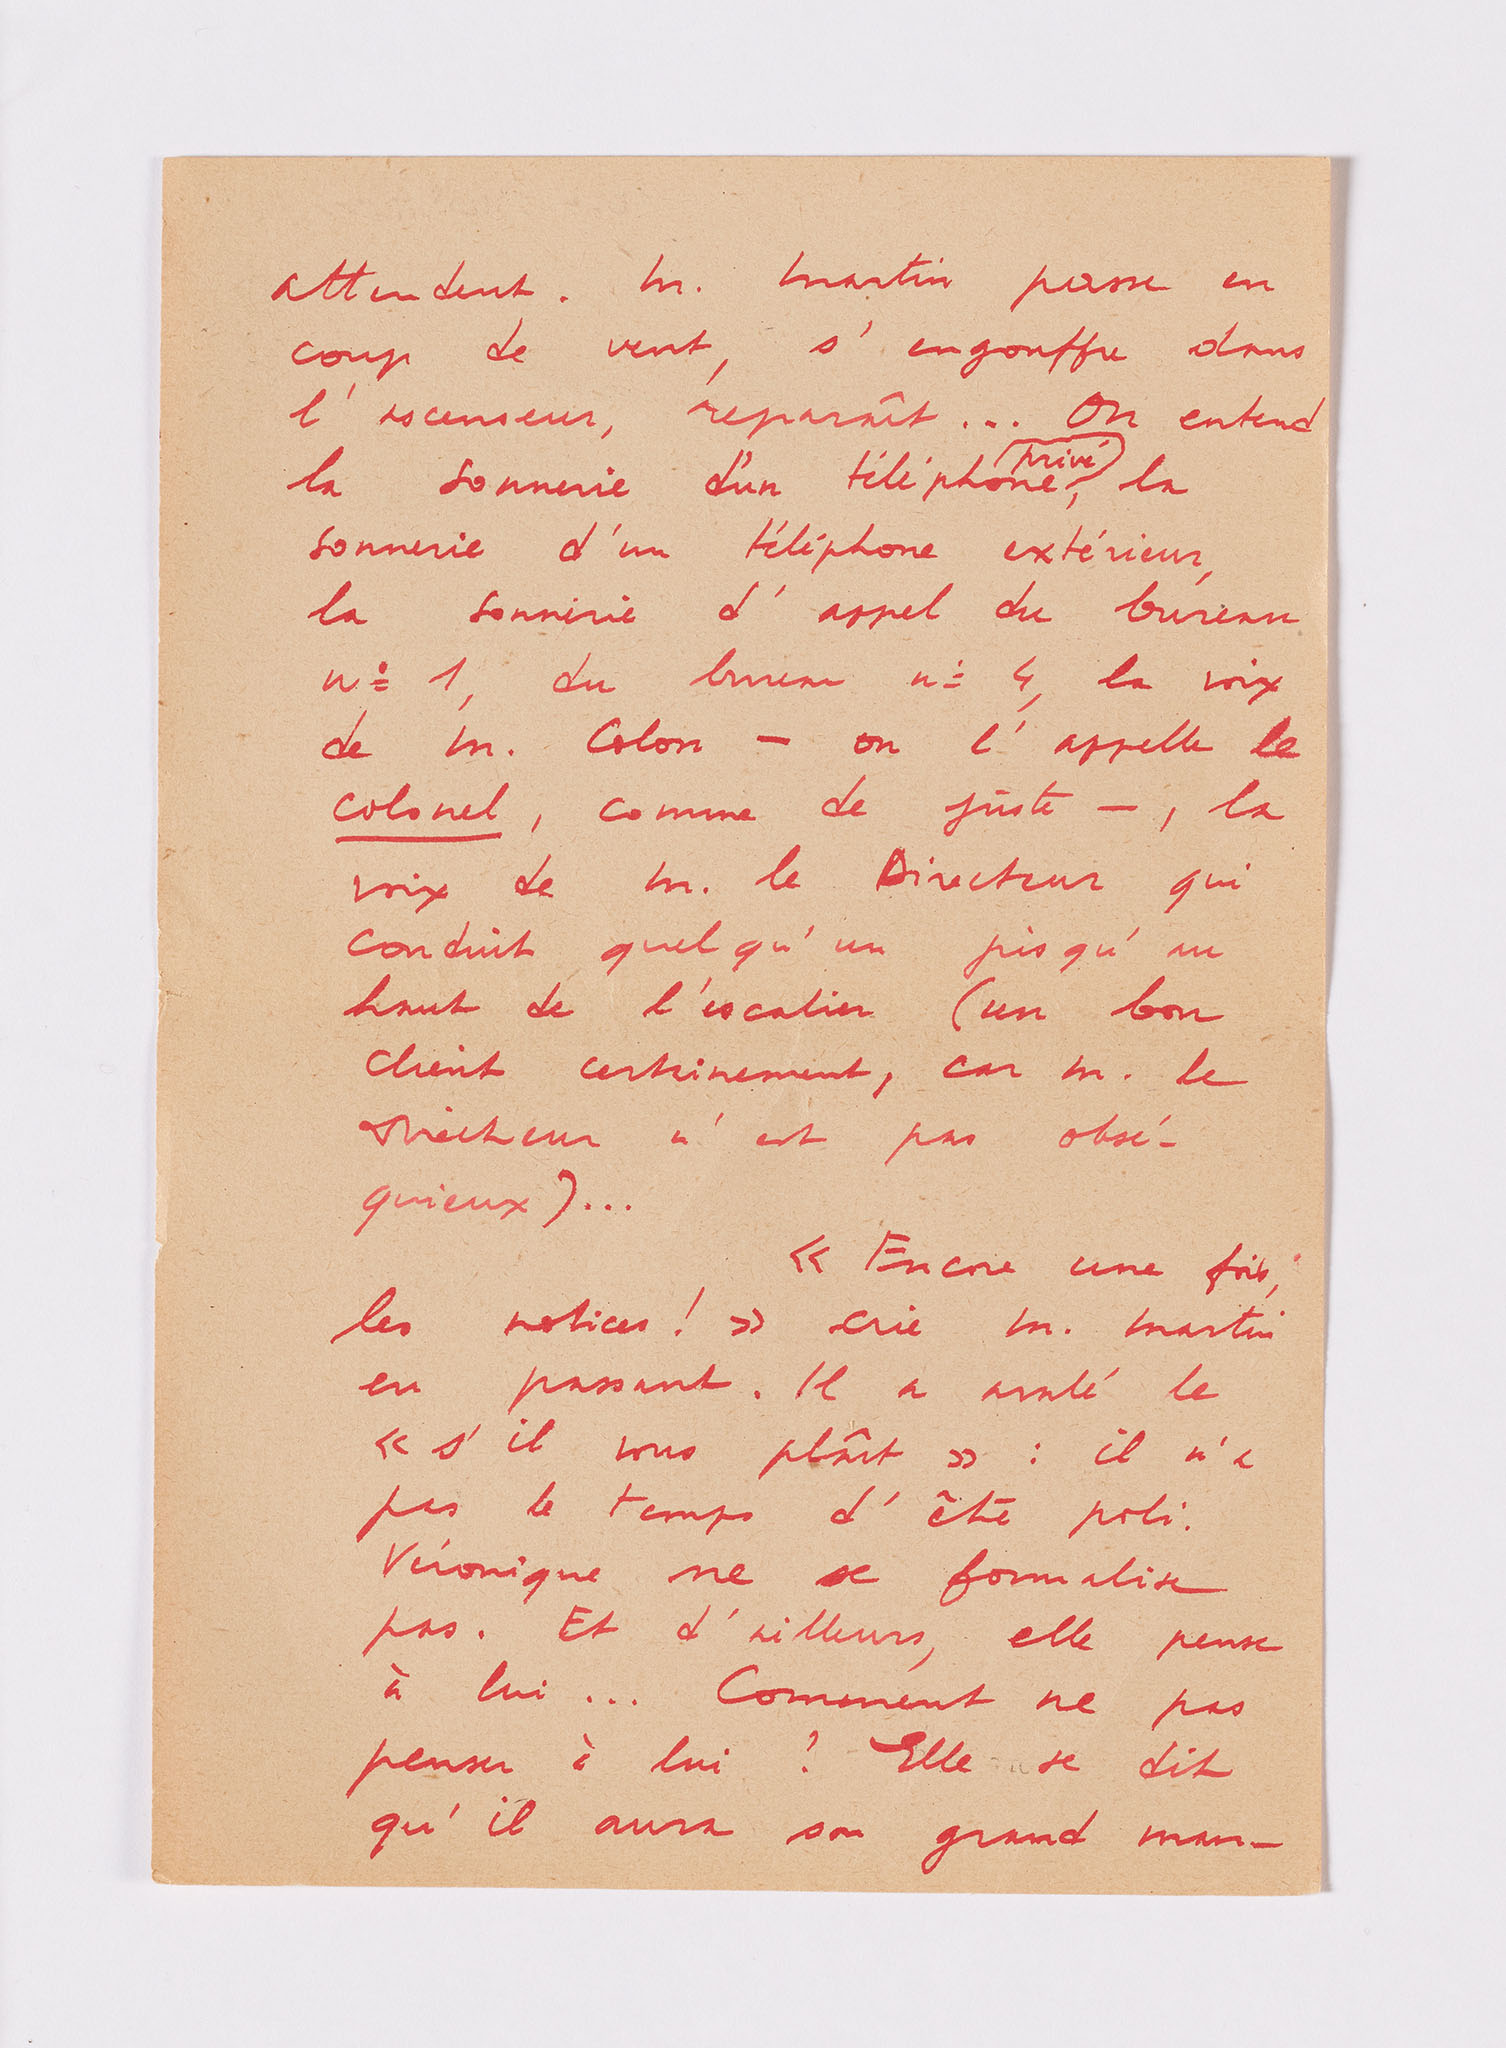 attendent. M. Martin passe en
coup de vent, s'engouffre dans
l'ascenseur, reparaît... On entend
la sonnerie d'un téléphone privé, la
sonnerie d'un téléphone extérieur,
la sonnerie d'appel du bureau
n° 1, du bureau n° 4, la voix
de M. Colon — on l'appelle le
colonel, comme de juste —, la
voix de M. le Directeur qui
conduit quelqu'un jusqu'au
haut de l'escalier (un bon
client certainement, car M. le
Directeur n'est pas obsé-
quieux)...
« Encore une fois,
les notices ! » crie M. Martin
en passant. Il a avalé le
« s'il vous plaît » : il n'a
pas le temps d'être poli.
Véronique ne se formalise
pas. Et d'ailleurs, elle pense
à lui... Comment ne pas
penser à lui ? Elle se dit
qu'il aura son grand man-